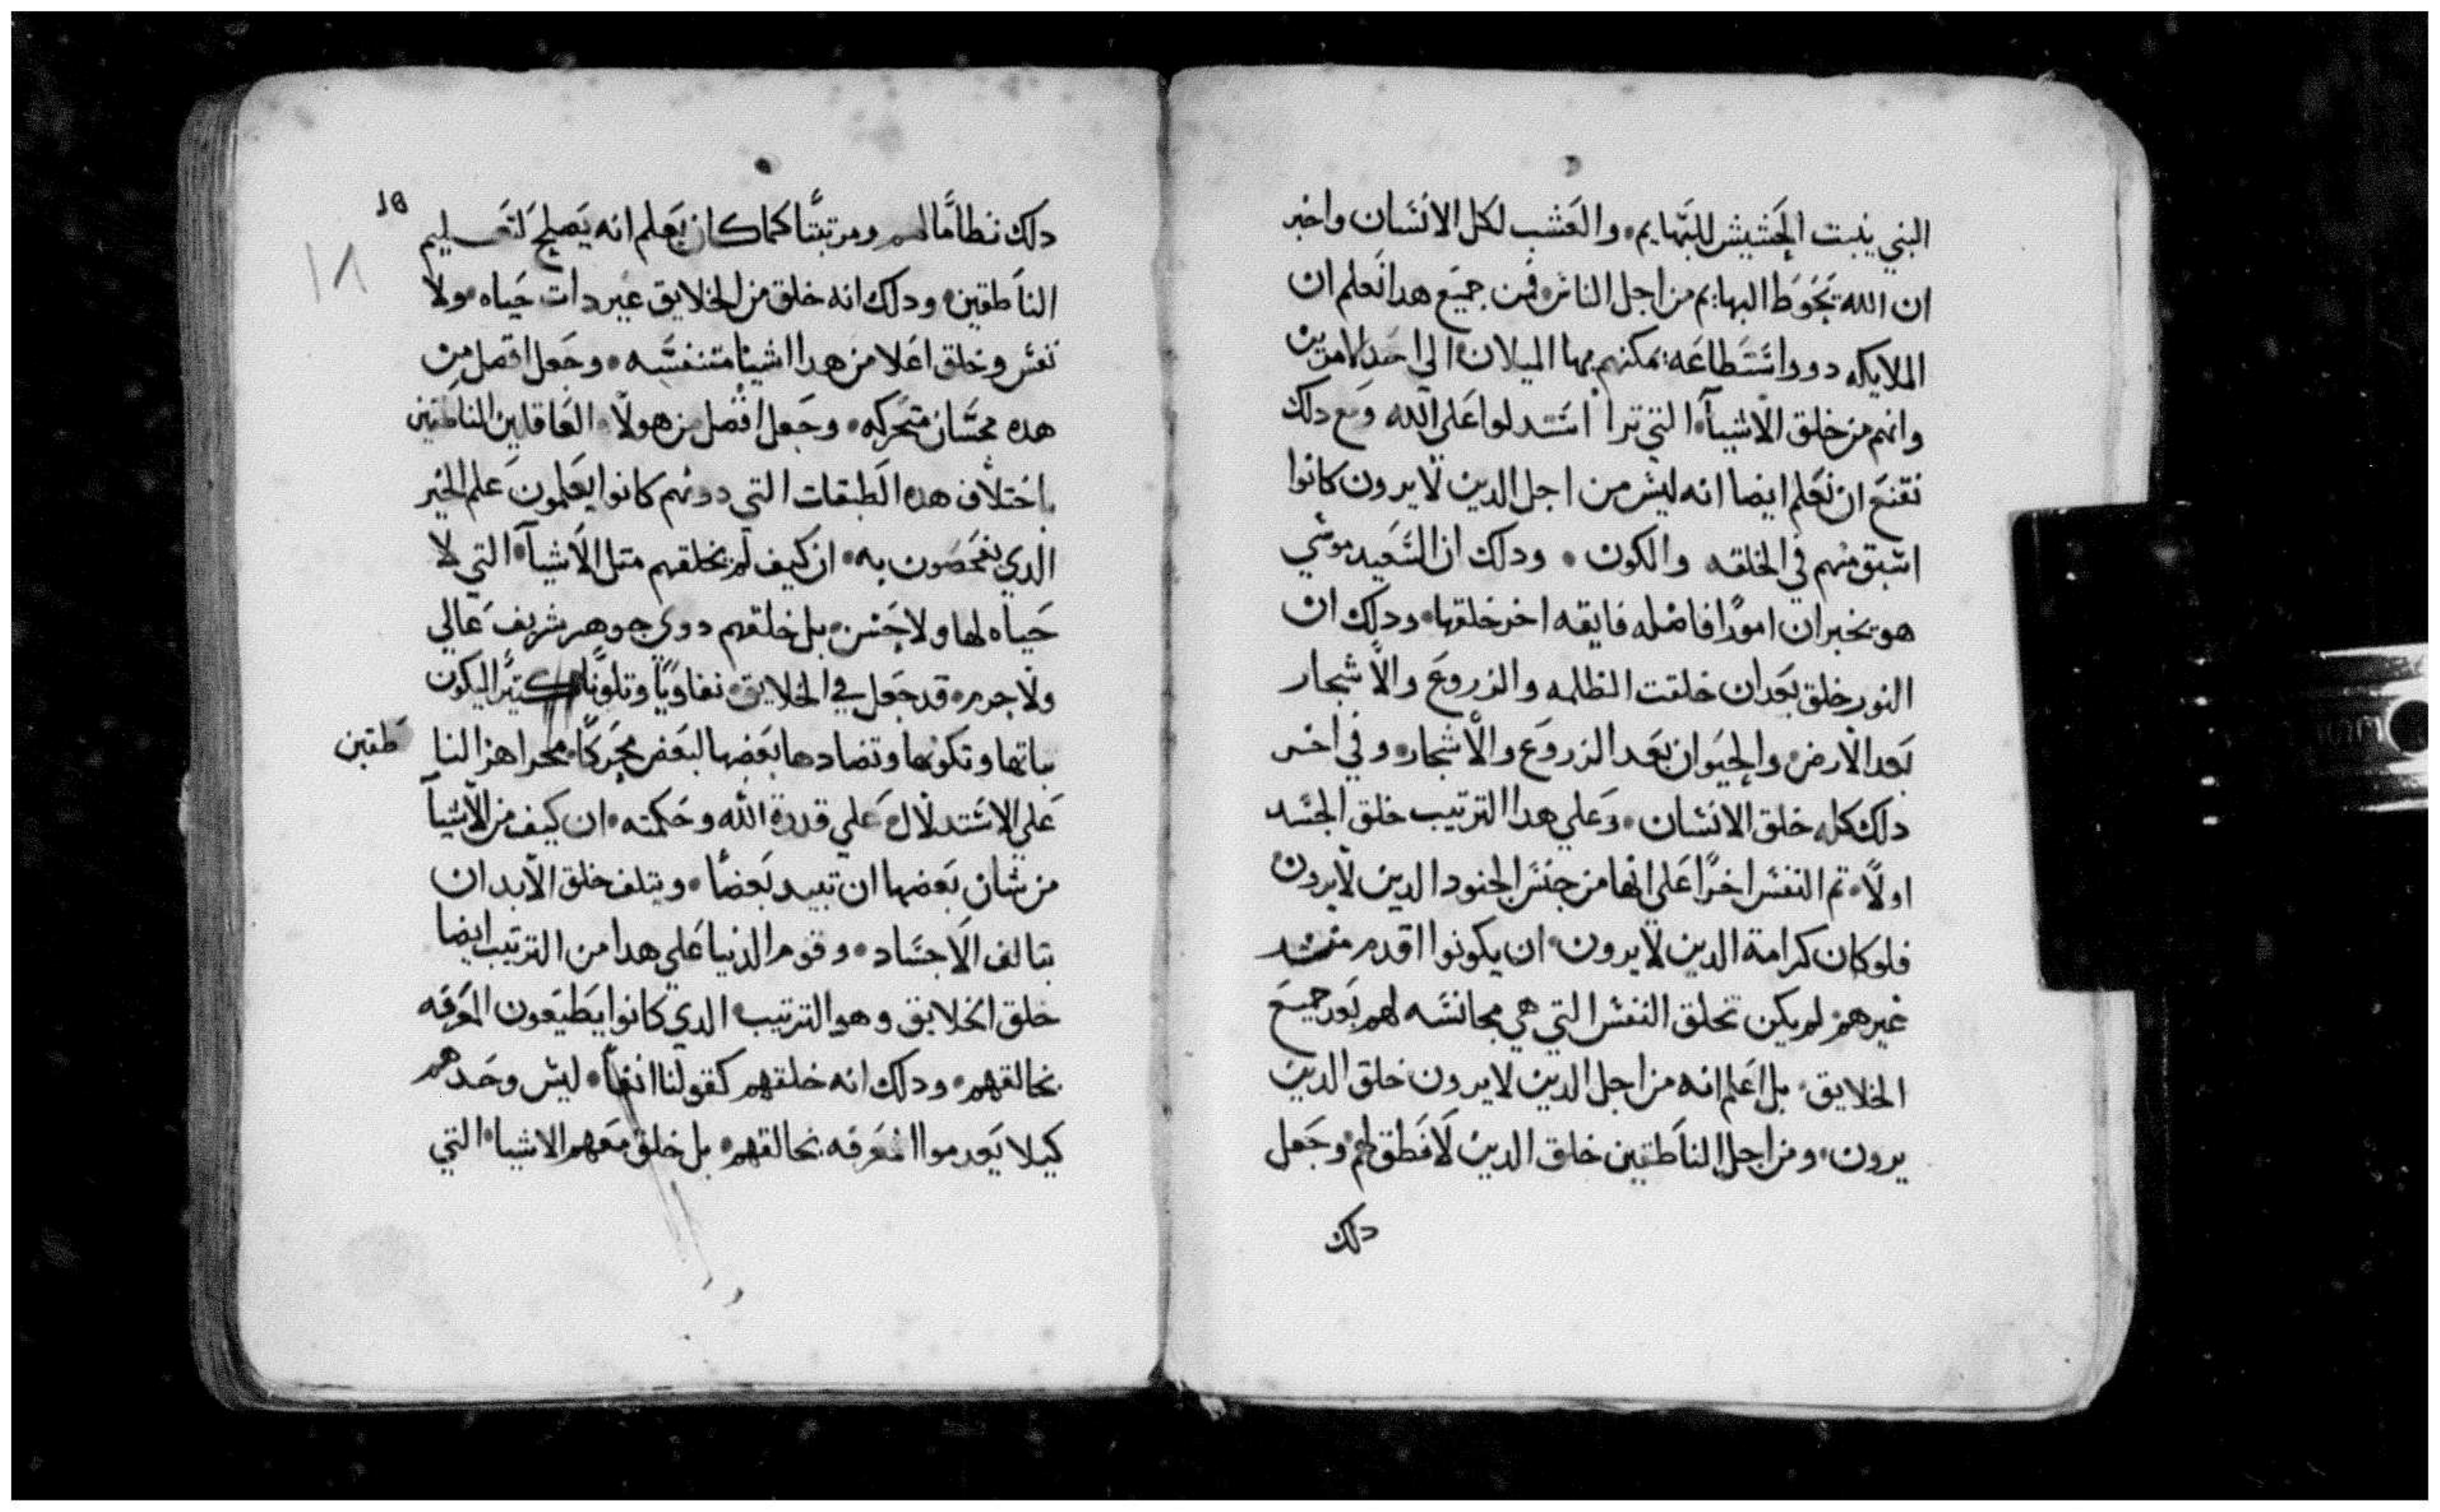 البني ينبت الحشيش للبهايم والعشب لكل الانسان واخبر
ان الله يحوط البهايم من اجل الناس فمن جميع هدا نعلم ان
الملايكه دووا ستطاعه يمكنهم بها الميلان الي احد الامرين
وانهم من خلق الاشيآ التي ترا استدلوا علي الله ومع دلك
نقنع ان نعلم ايضا انه ليس من اجل الدين لا يرون كانوا
اسبق منهم في الخلقه والكون ودلك ان السعيد موسي
هو يخبر ان امورًا فاضله فايقه اخر خلقها ودلك ان
النور خلق بعد ان خلقت الظلمه والزروع والاشجار
بعد الارض والحيوان بعد الزروع والاشجار وفي اخر
دلك كله خلق الانسان وعلي هدا الترتيب خلق الجسد
اولًا تم النفس اخرًا علي انها من جنس الجنود الدين لا يرون
فلو كان كرامة الدين لا يرون ان يكونوا اقدم مند
غيرهم لم يكن تخلق النفس التي هي مجانسه لهم بعد جميع
الخلايق بل اعلم انه من اجل الدين لا يرون خلق الدين
يرون ومن اجل الناطقين خلق الدين لا نطق لهم وجعل
دلك
دلك نظامًا لهم ومرتبتًا كما كان يعلم انه يصلح لتعليم
الناطقين ودلك انه خلق من الخلايق غير دات حياه ولا
نفس وخلق اعلا من هدا اشيا متنفسه وجعل افضل من
هده محسان متحركه وجعل افضل من هولا العاقلين الناطقين
باختلاف هده الطبقات التي دونهم كانوا يعلمون علم الخير
الدي يفحصون به ان كيف لم يخلقهم متل الاشيآ التي لا
حياه لها ولا حس بل خلقهم دوي جوهر شريف عالي
ولا جرم قد جعل في الخلايق تفاوتًا وتلونًا كتيرًا ليكون
بباتها وتكونها وتضادها بعضها لبعض محركًا محرا هز النا طقين
علي الاستدلال علي قدرة الله وحكمته ان كيف من الاشيآ
من شان بعضها ان تبيد بعضًا ويتلف خلق الابدان
بتالف الاجساد وقوم الدنيا علي هدا من الترتيب ايضا
خلق الخلايق وهو الترتيب الدي كانوا يطيعون المعرفه
بخالقهم ودلك انه خلقهم كقولنا انفًا ليس وحدهم
كيلا يعدموا المعرفه بخالقهم بل خلق معهم الاشيا التي